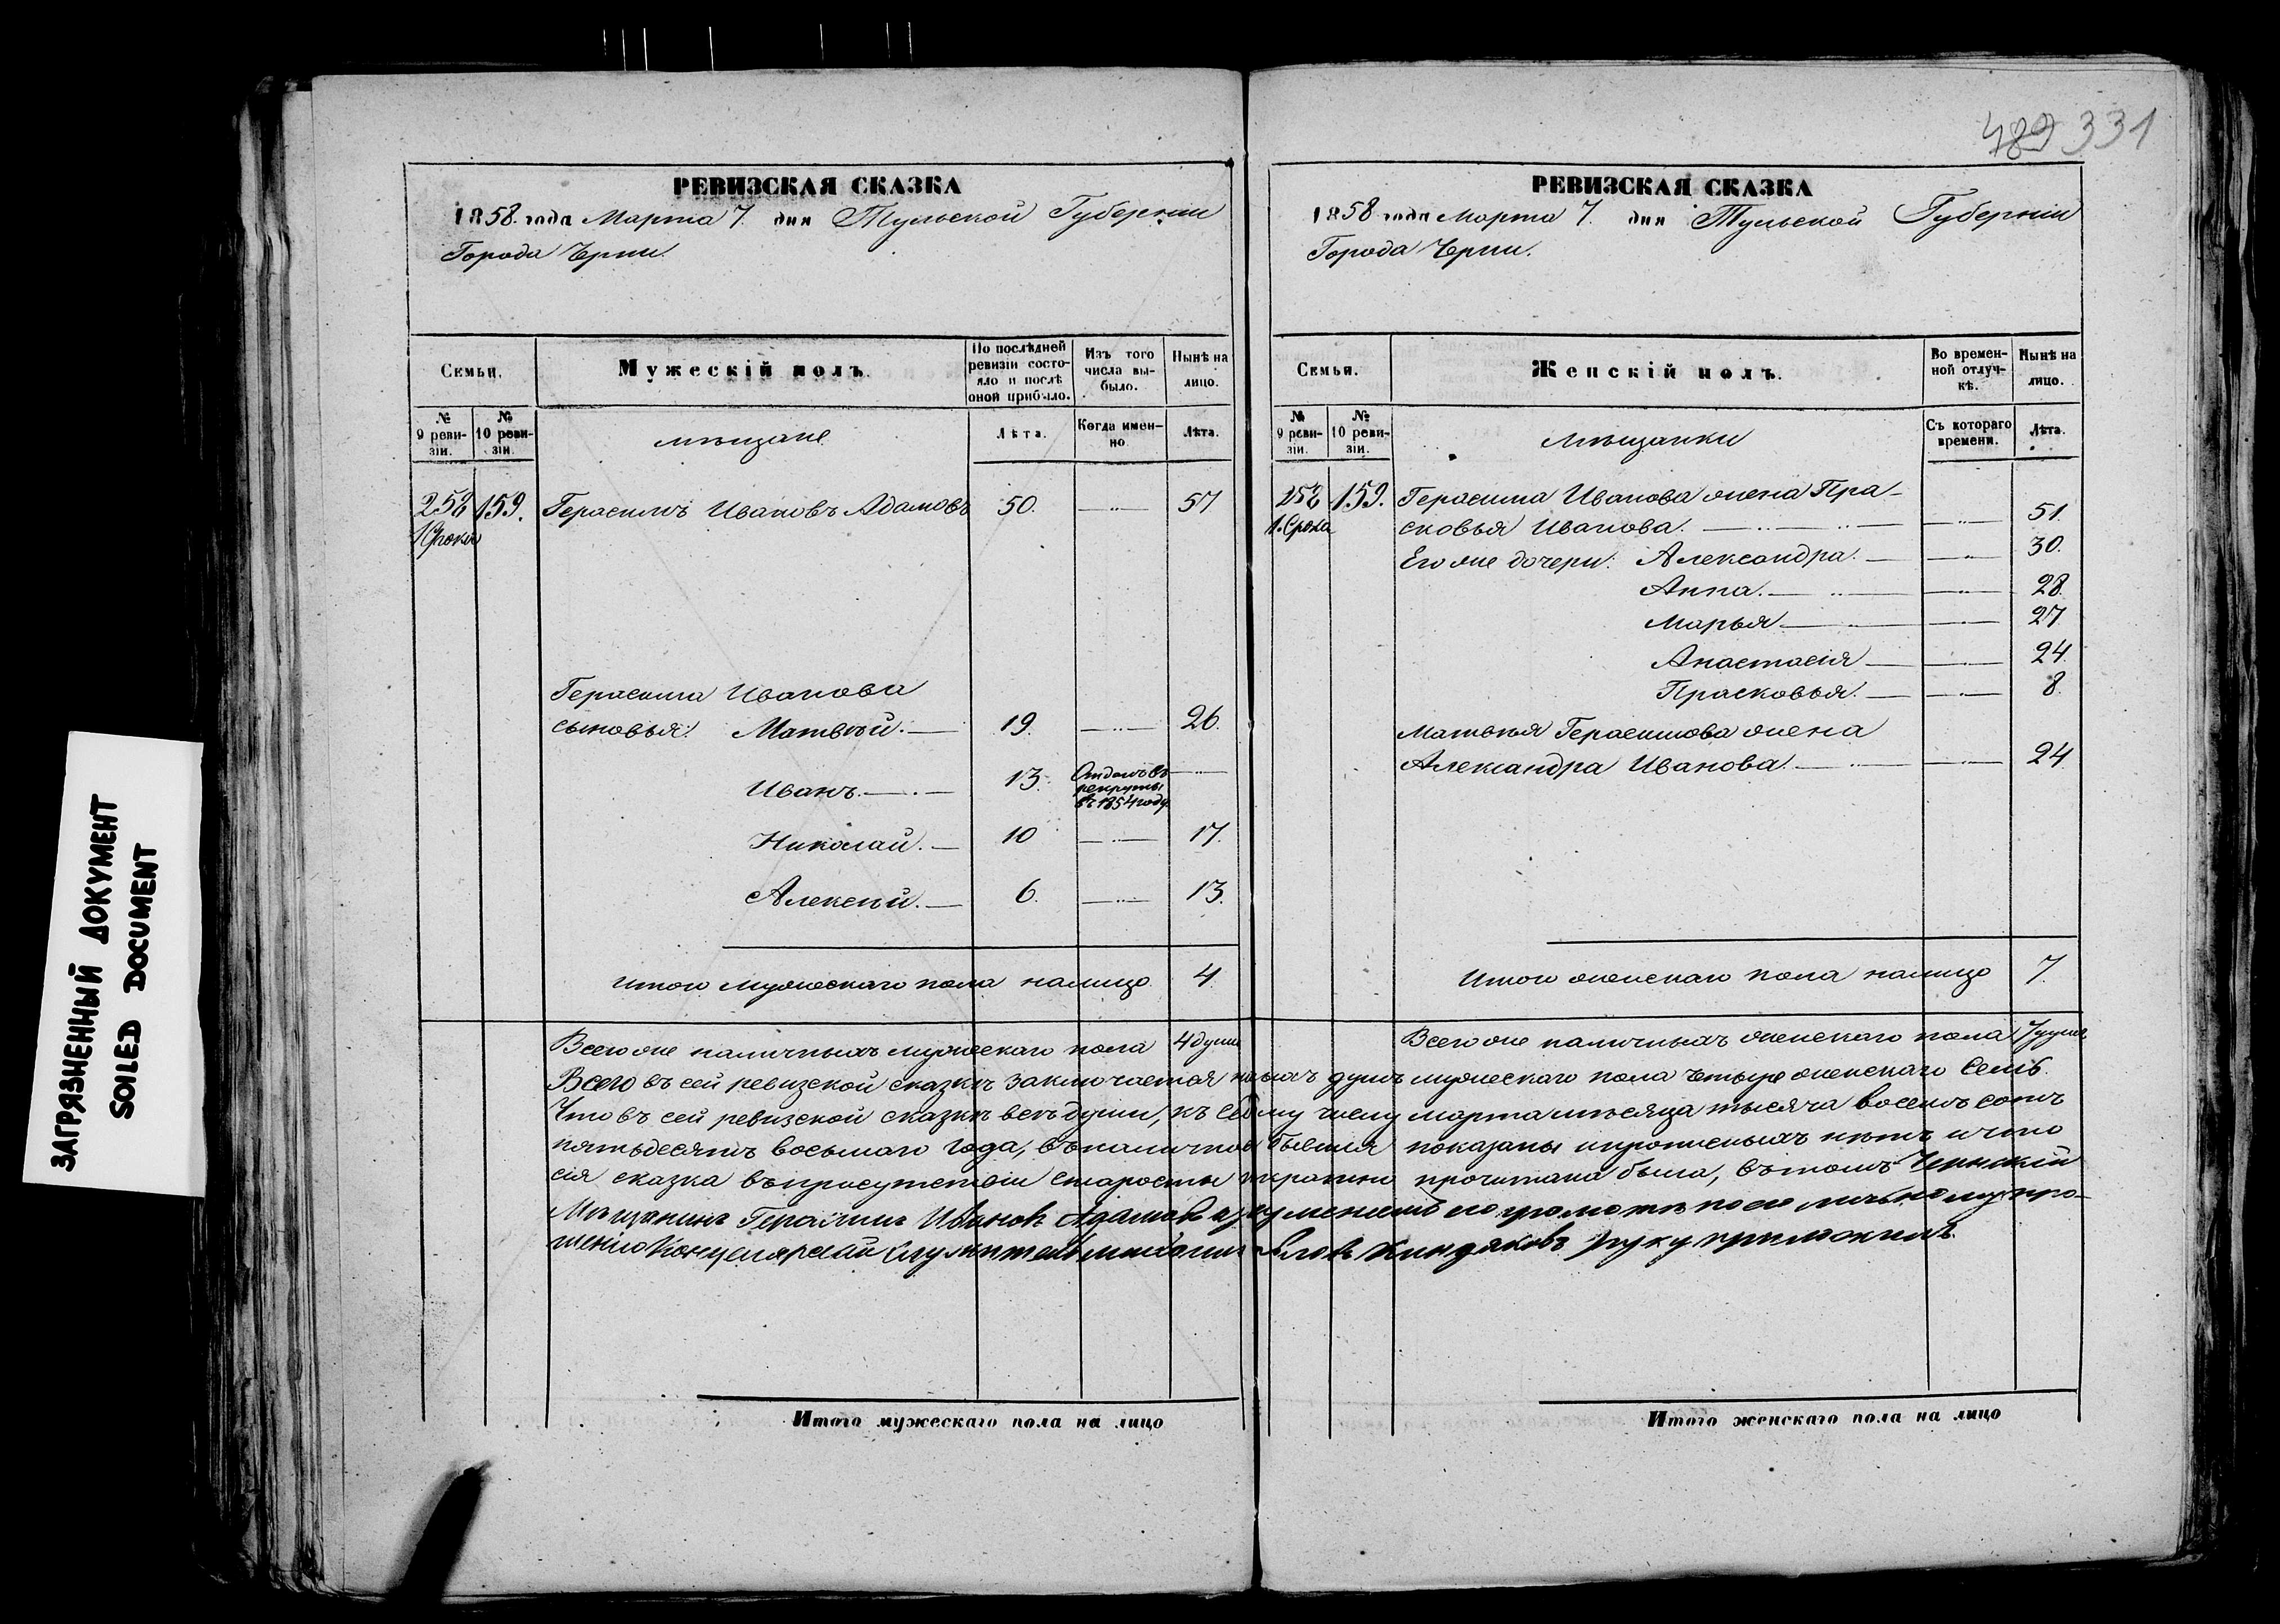 489 331
РЕВИЗСКАЯ СКАЗКА
1858 года Марта 7. дня Тульской Губернии
Города Черни.
Семьи.
Мужескій полъ.
По послѣдней ревизіи состояло и послѣ оной прибыло.
Изъ того числа выбыло.
Нынѣ на лицо.
№ 9 ревизіи.
№ 10 ревизіи.
мѣщане
Лѣта.
Когда именно
Лѣта.
252 159. Герасимъ Ивановъ Адамовъ 50. 57
1 Срока
Герасима Иванова
сыновья: Матвѣй. 19. 26.
Иванъ. 13. Отданъ въ
рекруты
въ 1854 году.
Николай. 10 17.
Алексѣй. 6. 13.
Итого мужескаго пола налицо 4
Всего же наличныхъ мужескаго пола 4 души
РЕВИЗСКАЯ СКАЗКА
1858 года Марта 7. дня Тульской Губерніи
Города Черни.
Семьи.
Женскій полъ.
Во временной отлучкѣ.
Нынѣ на лицо.
№ 9 ревизіи.
№ 10 ревизіи.
мѣщанки
Съ котораго времени.
Лѣта.
252 159. Герасима Иванова жена Пра-
1. Срока сковья Иванова. 51.
Его же дочери: Александра. 30.
Анна. 28.
Марья 27
Анастасія 24
Прасковья. 8.
Матвѣя Герасимова жена
Александра Иванова. 24
Итого женскаго пола налицо 7.
Всего же наличныхъ женскаго пола 7 душъ
Всего въ сей ревизской сказкѣ заключается душъ мужескаго пола четыре женскаго семь.
Что въ сей ревизской сказкѣ всѣ души, къ седьмому числу марта мѣсяца тысяча восемь сотъ
пятьдесятъ восьмаго года, въ наличности бывшія показаны и прописныхъ нѣтъ и что
сія сказка въ присутствіи старосты прочитана была, въ томъ Чернскій
Мѣщанинъ Герасимъ Ивановъ Адамовъ а за неумениемъ его грамоте по его личному про-
шению Канцелярский служитель руку приложилъ.
Итого мужескаго пола на лицо
Итого женскаго пола на лицо
ЗАГРЯЗНЕННЫЙ ДОКУМЕНТ
SOILED DOCUMENT